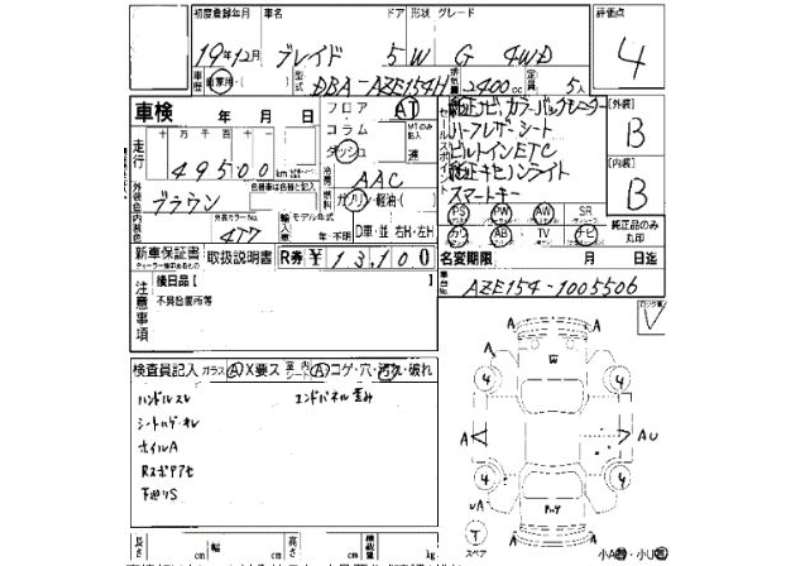 初度登録年月 車名 ドア 形状 グレード 評価点
19年12月 ブレイド 5 W G 4WD 4
車歴 自家用・( ) 型式 DBA-AZE154H 排気量 2400cc 定員 5人
車検 年 月 日 フロア AT 純正ナビ、カラーバックモニター [外装]
コラム MTのみ記入 ハーフレザーシート B
走行 十 万 千 百 十 一 ダッシュ 速 ビルトインETC
49500 km 冷房 AAC 純正キセノンライト [内装]
外装色 ブラウン 色替車は色替と記入 燃料 ガソリン・軽油・( ) スマートキー B
内装色 外装カラーNo. 4T7 輸入車 モデル年式 年・不明 D車・並 右H・左H
PS PW AW SR 純正品のみ
カワ AB TV ナビ 丸印
新車保証書 取扱説明書 R券 ¥13,100 名変期限 月 日迄
注意事項 後日品 [ ] 車台No. AZE154-1005506
不具合箇所等
検査員記入 ガラス A X要ス 室内シート A コゲ・穴・汚れ・破れ
ハンドルスレ エンドパネル歪み
シートハゲ・キレ
ホイルA
下廻りS
A A
A W
4 4
A A U
4 4
A
T
スペア A A
小A・小U
長さ cm 幅 cm 高さ cm 積載量 kg